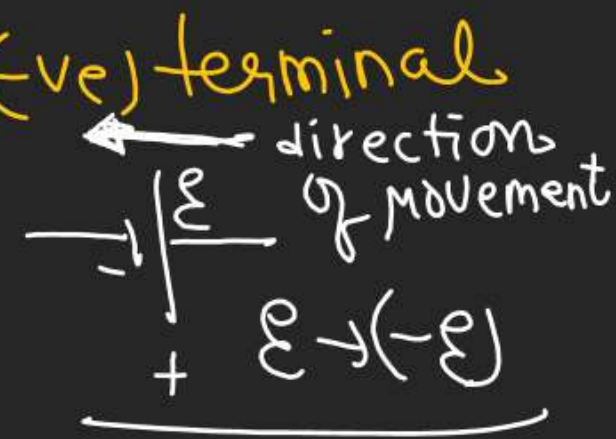 (-ve) terminal
direction
ε of movement
-
+ ε → (-ε)